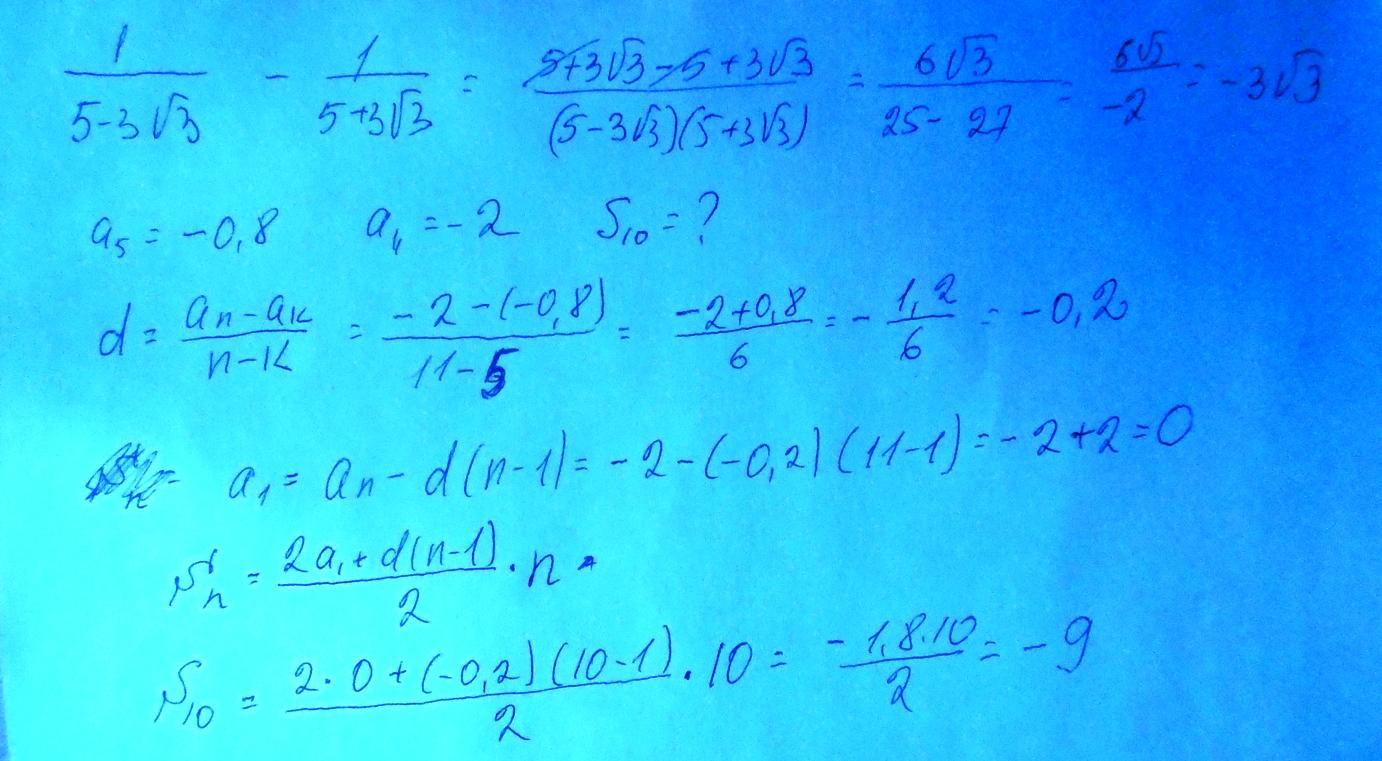 1/(5-3√3) - 1/(5+3√3) = (5+3√3-5+3√3)/((5-3√3)(5+3√3)) = 6√3/(25-27) = 6√3/-2 = -3√3
a₅ = -0,8 a₁₁ = -2 S₁₀ = ?
d = (aₙ-aₖ)/(n-k) = (-2-(-0,8))/(11-5) = (-2+0,8)/6 = -1,2/6 = -0,2
a₁ = aₙ - d(n-1) = -2-(-0,2)(11-1) = -2+2=0
Sₙ = (2a₁+d(n-1))/2 · n
S₁₀ = (2·0+(-0,2)(10-1))/2 · 10 = (-1,8·10)/2 = -9